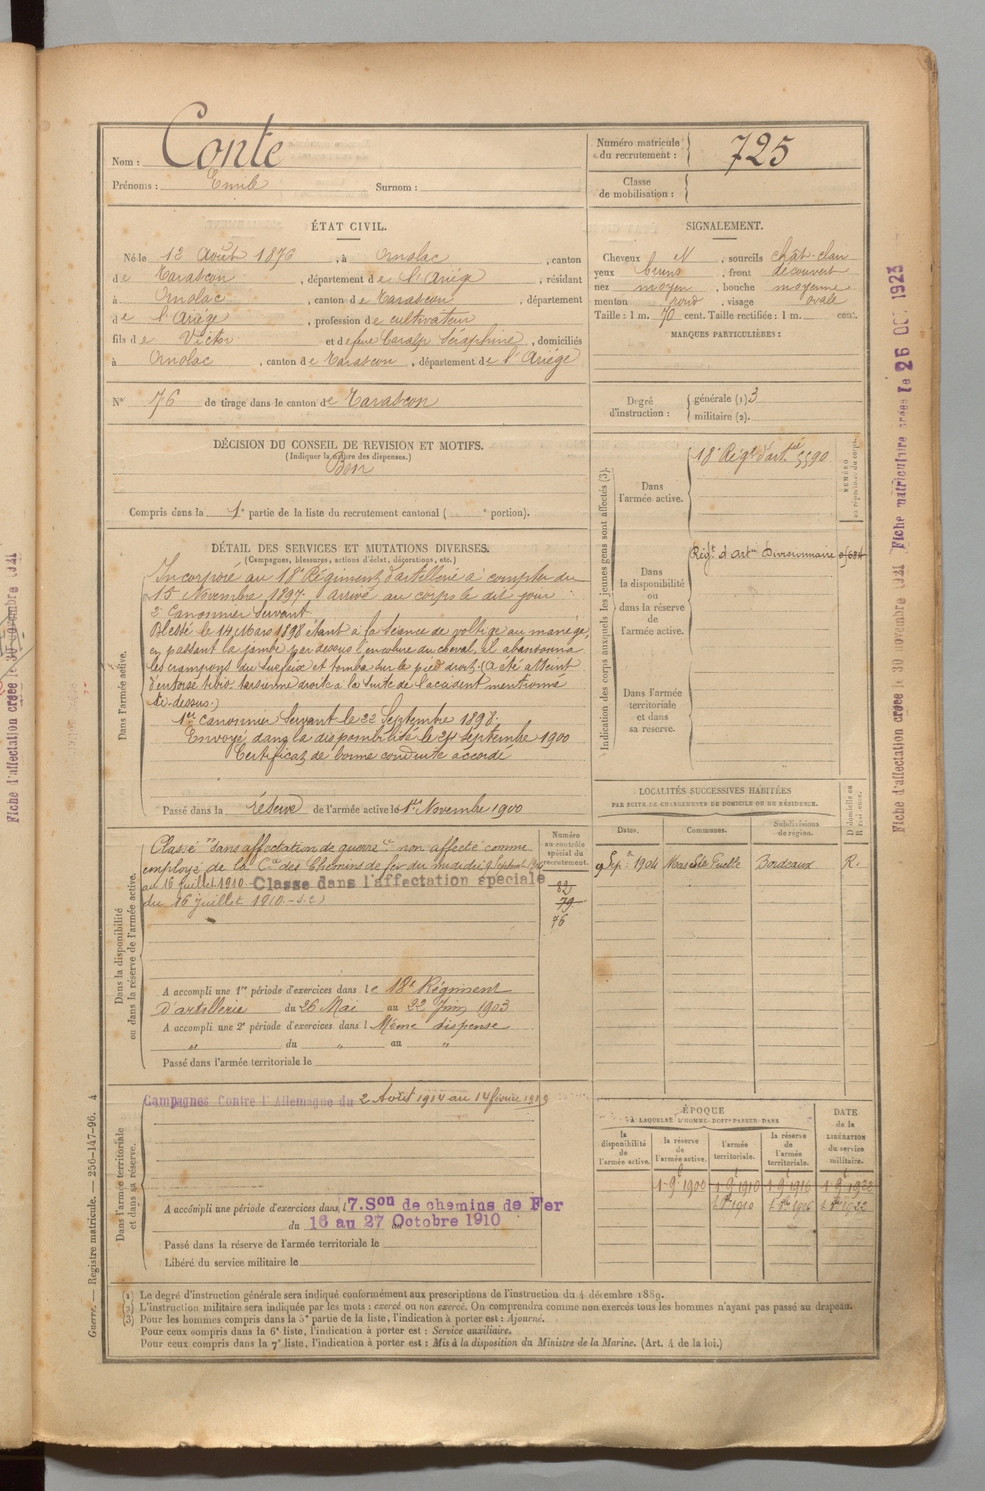 Nom : Conte
Prénoms : Emile Surnom :
Numéro matricule du recrutement : 725
Classe de mobilisation :
ÉTAT CIVIL.
Né le 12 Août 1876, à Ornolac, canton
de Tarascon, département de l'Ariège, résidant
à Ornolac, canton de Tarascon, département
de l'Ariège, profession de cultivateur
fils de Victor et de feue Caralp Séraphine, domiciliés
à Ornolac, canton de Tarascon, département de l'Ariège
N° 76 de tirage dans le canton de Tarascon
SIGNALEMENT.
Cheveux N, sourcils chât-clair
yeux bruns, front découvert
nez moyen, bouche moyenne
menton rond, visage ovale
Taille : 1 m. 70 cent. Taille rectifiée : 1 m. cent.
MARQUES PARTICULIÈRES :
Degré d'instruction : générale (1) 3
militaire (2).
DÉCISION DU CONSEIL DE REVISION ET MOTIFS.
(Indiquer la nature des dispenses.)
Bon
Compris dans la 1e partie de la liste du recrutement cantonal ( e portion).
DÉTAIL DES SERVICES ET MUTATIONS DIVERSES.
(Campagnes, blessures, actions d'éclat, décorations, etc.)
Dans l'armée active.
Incorporé au 18e Régiment d'artillerie à compter du
15 Novembre 1897. Arrivé au corps le dit jour
2e Canonnier Servant.
Blessé le 14 Mars 1898 étant à la séance de voltige au manège,
en passant la jambe par dessus l'encolure du cheval, il abandonna
les crampons du surfaix et tomba sur le pied droit. (A été atteint
d'entorse tibio-tarsienne droite à la suite de l'accident mentionné
ci-dessus.)
1er canonnier Servant le 22 Septembre 1898.
Envoyé dans la disponibilité le 24 Septembre 1900
Certificat de bonne conduite accordé
Passé dans la réserve de l'armée active le 1er Novembre 1900
Indication des corps auxquels les jeunes gens sont affectés (3).
Dans l'armée active.
18e Régt d'artie 5590
NUMÉRO au répertoire du corps.
Dans la disponibilité ou dans la réserve de l'armée active.
Régt d'artie Divisionnaire
Dans l'armée territoriale et dans sa réserve.
LOCALITÉS SUCCESSIVES HABITÉES
PAR SUITE DE CHANGEMENTS DE DOMICILE OU DE RÉSIDENCE.
Dates. Communes. Subdivisions de région. D domicile ou R résidence.
9 Sep. 1904 Bordeaux R.
Dans la disponibilité ou dans la réserve de l'armée active.
Numéro au contrôle spécial du recrutement.
Classé dans affectation de guerre non affecté comme
employé de la Cie des Chemins de fer du midi du 9 Septembre 1904
au 16 juillet 1910. Classé dans l'affectation spéciale
du 16 juillet 1910
82
79
76
A accompli une 1re période d'exercices dans le 18e Régiment
d'artillerie du 26 Mai au 22 Juin 1903
A accompli une 2e période d'exercices dans l Même dispense
" du " au "
Passé dans l'armée territoriale le
Dans l'armée territoriale et dans sa réserve.
Campagnes Contre l'Allemagne du 2 Août 1914 au 14 février 1919
A accompli une période d'exercices dans l 7.Son de chemins de Fer
du 16 au 27 Octobre 1910
Passé dans la réserve de l'armée territoriale le
Libéré du service militaire le
ÉPOQUE
À LAQUELLE L'HOMME DOIT PASSER DANS
la disponibilité de l'armée active. la réserve de l'armée active. l'armée territoriale. la réserve de l'armée territoriale.
DATE de la LIBÉRATION du service militaire.
1-9-1900 1-9-1910 1-9-1916 1-9-1922
1910 1916 1922
(1) Le degré d'instruction générale sera indiqué conformément aux prescriptions de l'instruction du 4 décembre 1889.
(2) L'instruction militaire sera indiquée par les mots : exercé ou non exercé. On comprendra comme non exercés tous les hommes n'ayant pas passé au drapeau.
(3) Pour les hommes compris dans la 5e partie de la liste, l'indication à porter est : Ajourné.
Pour ceux compris dans la 6e liste, l'indication à porter est : Service auxiliaire.
Pour ceux compris dans la 7e liste, l'indication à porter est : Mis à la disposition du Ministre de la Marine. (Art. 4 de la loi.)
Guerre. — Registre matricule. — 256-147-96. 4
Fiche d'affectation créée le 30 novembre 1921 Fiche matriculaire créée le 26 OC. 1923
Fiche d'affectation créée le 30 novembre 1921